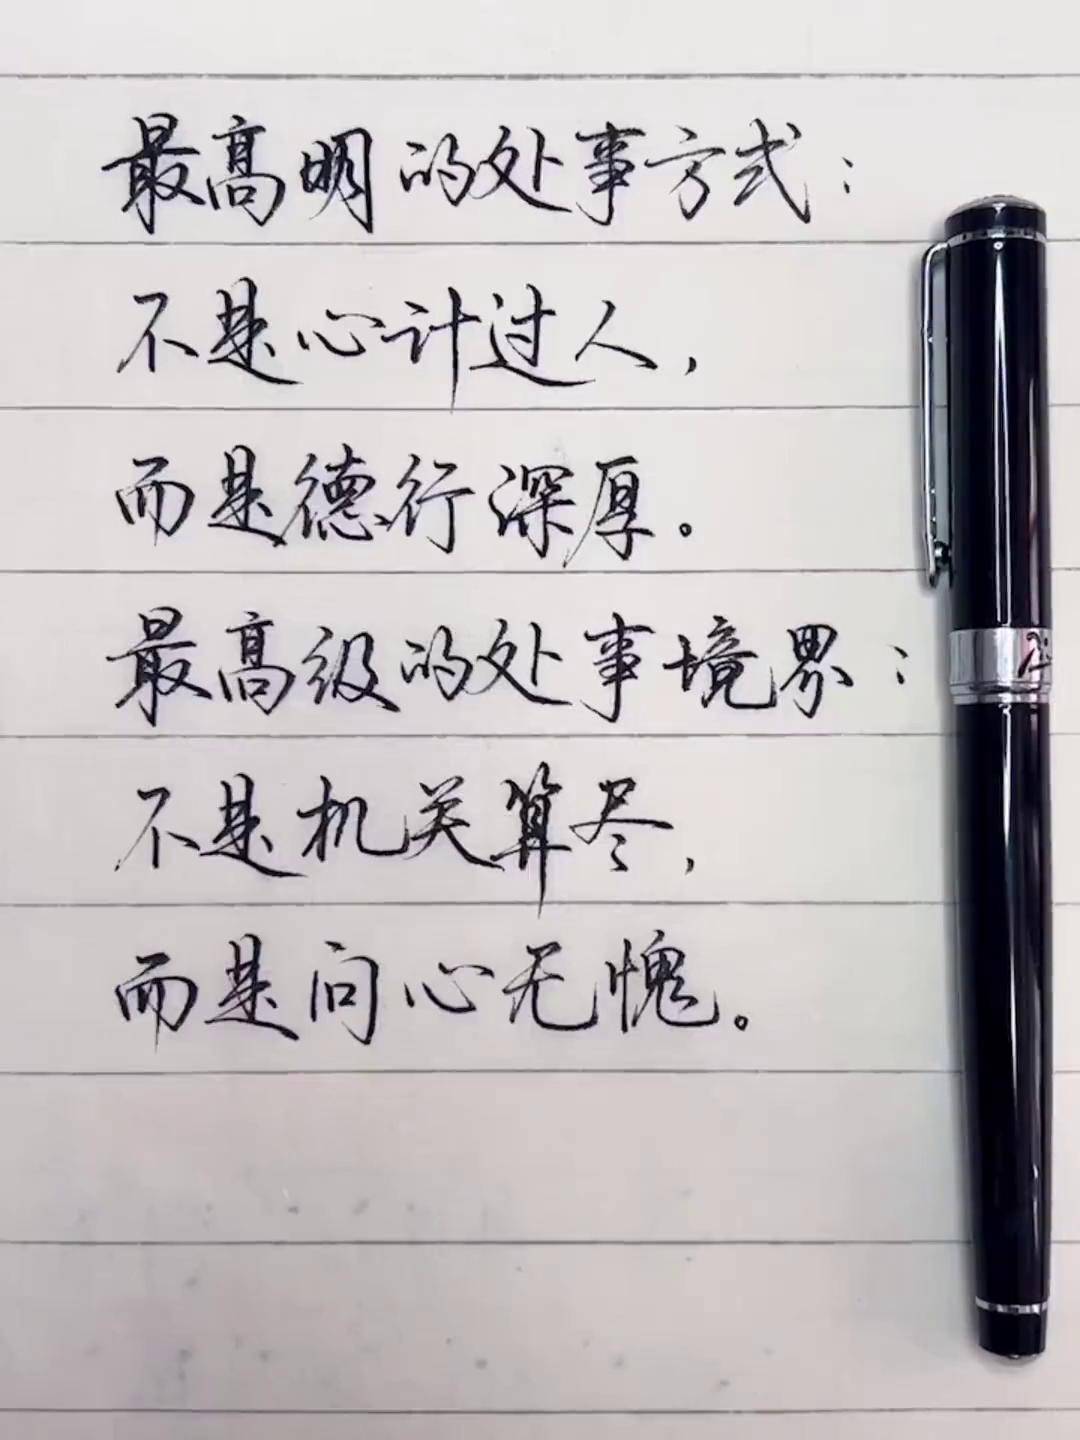 最高明的处事方式：
不是心计过人，
而是德行深厚。
最高级的处事境界：
不是机关算尽，
而是问心无愧。